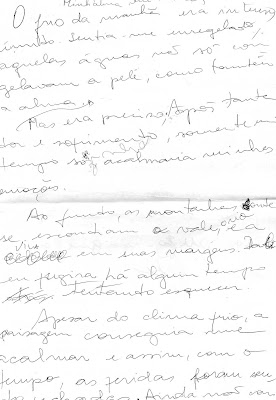 O frio da manhã era intenso
úmido. Sentia-me enregelado
aquelas águas não só con
gelavam a pele, como também
a alma.
Mas era preciso. Após tante
dor e sofrimento, somente
tempo acalmaria minhas
emoções.
Ao fundo, as montanhas onde
se escondiam o vale, eu
vivo em suas margens.
eu fugira há algum tempo
tentando esquecer.
Apesar do clima frio, a
paisagem conseguia me
acalmar e assim, com o
tempo, as feridas foram
Ainda não